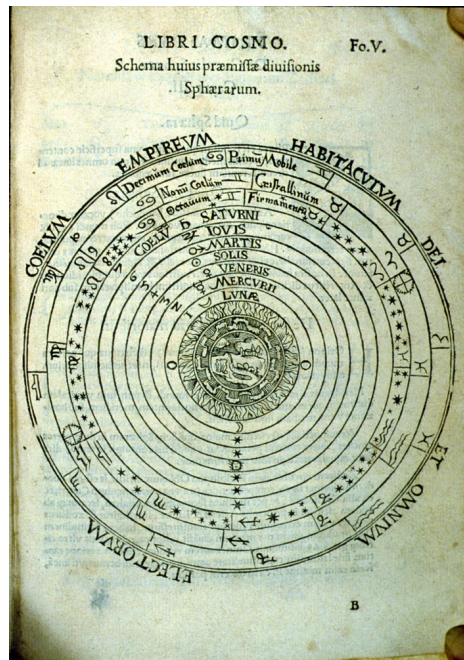 LIBRI COSMO. Fo.V.
Schema huius præmissæ diuisionis
Sphærarum.
COELVM EMPIREVM HABITACVLVM DEI ET OMNIVM ELECTORVM
Decimum Coelum Primũ Mobile
Nonũ Coelum Cristallinum
Octauum Firmamentũ
COELV SATVRNI
IOVIS
MARTIS
SOLIS
VENERIS
MERCVRII
LVNÆ
B